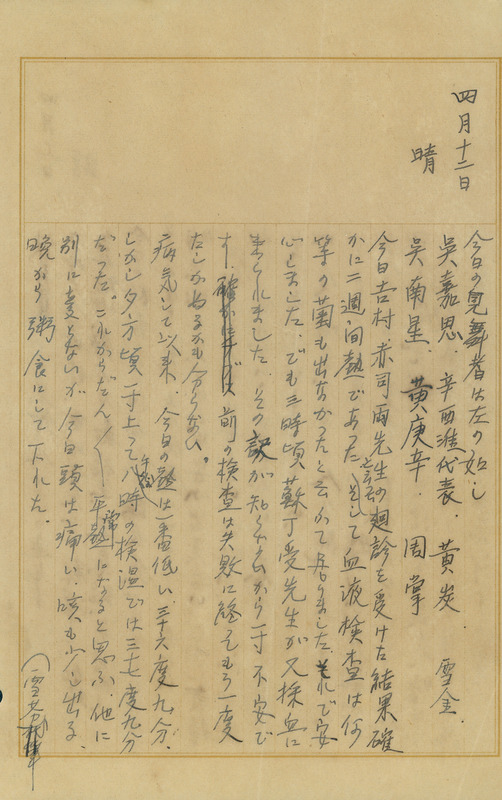 四月十二日
晴
今日の見舞者は左の如し
吳嘉思．辛西淮代表．黃炭　雪金
吳南星．黃庚辛．周掌
今日吉村　赤司両先生の廻診を受けた結果確
かに二週間熱であったと云ふ そして血液検査は何
等の菌も出なかったと云かて居りました．それで安
心しました．でも三時頃蘇丁受先生が又採血に
来られました．その訳が知らないから一寸不安で
す．前の検査は失敗に終てもう一度
たしかめるかも分らない。
病気して以来．今日の午後の熱は一番低い．三十六度九分．
しかし夕方頃一寸上って八時の検温では三七度九分
だった．これからだん〳〵平常熱になると思ふ．他に
別に変りないが今日頭は痛い．咳も少し出る．
晩から粥食にして下れた．